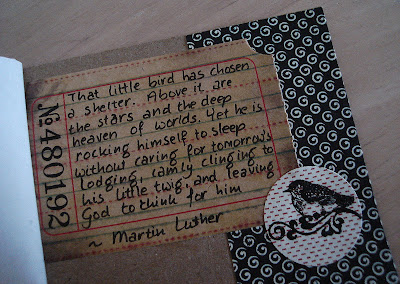 No 480192
That little bird has chosen
a shelter. Above it are
the stars and the deep
heaven of worlds. Yet he is
rocking himself to sleep
without caring for tomorrow's
lodging, calmly clinging to
his little twig, and leaving
God to think for him
~ Martin Luther